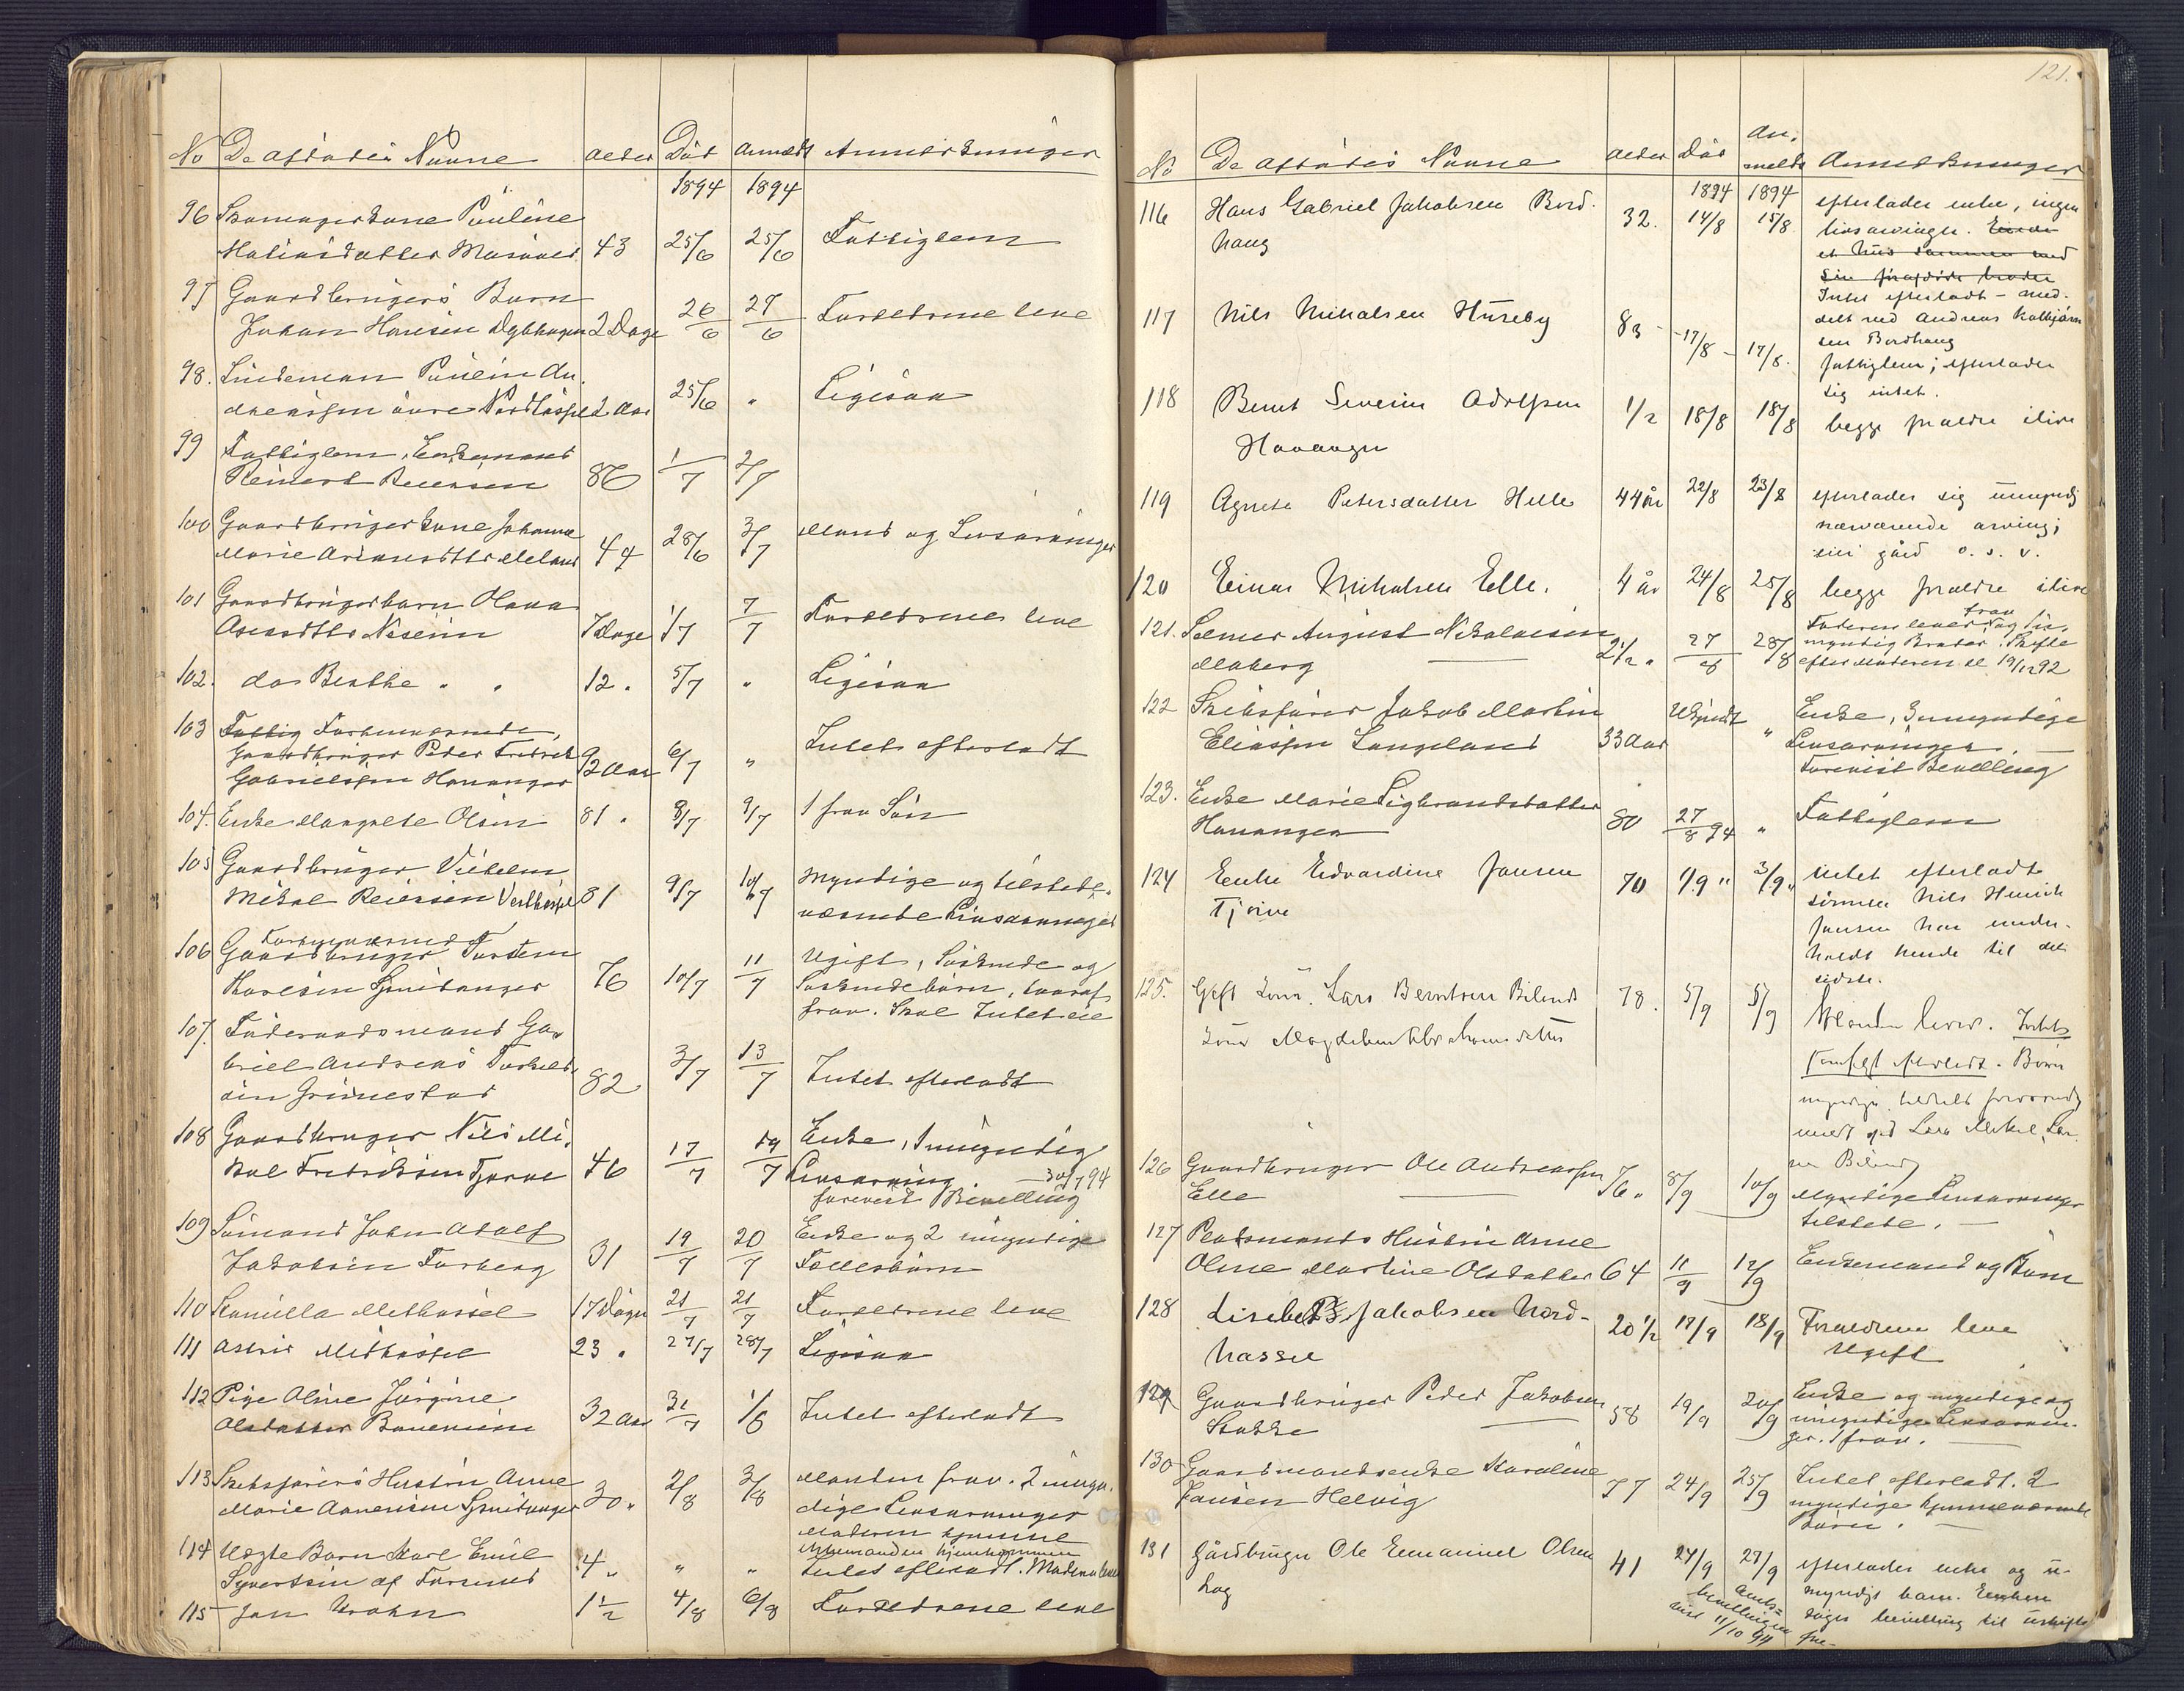 No De afdødes Navne Alder Død Anmeldt Anmerkninger
1894 1894
96 Skomagerkone Pauline
43 25/6 25/6 Fattiglem
97 Gaardbrugers Barn
Johan Hansen 2 Dage 26/6 27/6 Forældrene leve
98. Lindeman
2 Aar 25/6 " Ligesaa
99 Fattiglem, Enkemand
Reinert Reiersen 86 1/7 2/7
100 Gaardbrugerkone Johanne
Marie 44 28/6 3/7 Mand og Livsarvinger
101 Gaardbrugerbarn Olava
7 Dage 1/7 7/7 Forældrene leve
102. do Berthe " " 12 " 5/7 " Ligesaa
103 Fattig Forhenværende,
Gaardbruger Peder Fredrik
Gabrielsen Havanger 92 Aar 6/7 " Intet efterladt
104. Enke Margrete Olsen 81 " 8/7 9/7 1 frav Søn
105 Gaardbruger Vilhelm
Mikal Reiersen Vesthassel 81 9/7 10/7 Myndige og tilstede-
værende Livsarvinger
106 Forhenværende
Gaardbruger Torstein
76 10/7 11/7 Ugift, Søskende og
Søskendebørn, hvoraf
frav. Skal Intet eie
107. Føderaadsmand Ga-
briel Andreas Torkeld-
sen Grimestad 82 3/7 13/7 Intet efterladt
108 Gaardbruger Nils Mi-
kal Fredriksen Tjørve 46 17/7 19/7 Enke, 1 umyndig
Livsarving 30/7 94
forevist Bevilling
109 Sømand John Adolf
Jakobsen Farberg 31 19/7 20/7 Enke og 2 umyndige
Fællesbørn
110 Kamilla Midthassel 17 Dage 21/7 21/7 Forældrene leve
111 Astrid Midthassel 23 " 27/7 28/7 Ligesaa
112 Pige Oline Jørgine
Olsdatter 32 Aar 31/7 1/8 Intet efterladt
113 Skibsførers Hustru Anne
Marie 30 " 2/8 3/8 Manden frav. 2 umyn-
dige Livsarvinger
Moderen hjemme
Manden hjemkommen
114 Uægte Barn Karl Emil
Syvertsen af Farsund 4 " " " Intet efterladt. Moderen lever
115 Jon 1 1/2 4/8 6/8 Forældrene leve
121.
No De afdødes Navne Alder Død An-
meldt Anmerkninger
1894 1894
116 Hans Gabriel Jakobsen Bord-
haug 32. 14/8 15/8 efterlader enke, ingen
livsarvinger.
et hus sammen med
sin broder
Intet efterladt - med-
delt ved Andreas
sen Bordhaug
117 Nils Mikalsen Huseby 83 - 17/8 - 17/8. fattiglem; efterlader
sig intet.
118 Bernt Severin Adolfsen
Havanger 1/2 18/8 18/8 begge forældre ilive
119 Agnete Petersdatter Helle 44 år 22/8 23/8 efterlader sig umyndig
nærværende arving;
eier gård o. s. v.
120 Einar Mikalsen Elle. 4 år 24/8 25/8 begge forældre ilive
121. Selmer August Nikolaisen
Moberg 2 1/2 " 27/8 28/8 Faderen lever frav og u-
myndig Broder. Skifte
efter Moderen sl 19/12 92
122 Skibsfører Jakob Martin
Eliassen Langeland 33 Aar Ukjendt " Enke, 3 umyndige
Livsarvinger.
Forevist Bevilling
123. Enke Marie Sigbrandsdatter
Havanger 80 27/8 94 " Fattiglem
124 Enke Edvardine Jansen
Tjørve 70 1/9 " 3/9 " intet efterladt
sønnen Nils Henrik
Jansen har under-
holdt hende til det
sidste.
125. Gift kone. Lars Berntsen Bilands
kone Magdelene Abrahamsdatter 78. 5/9 5/9 Manden lever. Intet
efterladt. Børn
myndige.
meldt ved Lars Mikal Lar-
sen Biland
126 Gaardbruger Ole Andreassen
Elle 76 " 8/9 10/9 Myndige Livsarvinger
tilstede.
127 Pladsmands Hustru Anne
Oline Martine Olsdatter 64 11/9 12/9 Enkemand og Børn
128 Lisebet Jakobsen Nord-
hassel 20 1/2 17/9 18/9 Forældrene leve
Ugift
129 Gaardbruger Peder Jakobsen
Stokke 58 19/9 20/9 Enke og myndige og
umyndige Livsarvin-
ger. 1 frav.
130 Gaardmandsenke Karoline
Jansen Helvig 77 24/9 25/9 Intet efterladt. 2
myndige hjemmeværende
Børn.
131 Gårdbruger Ole Emanuel Olsen
Hag 41 24/9 27/9 efterlader enke og u-
myndigt barn. Enken
søger bevilling til uskiftet
Amts-
bevillingen fre-
vist 11/10 94